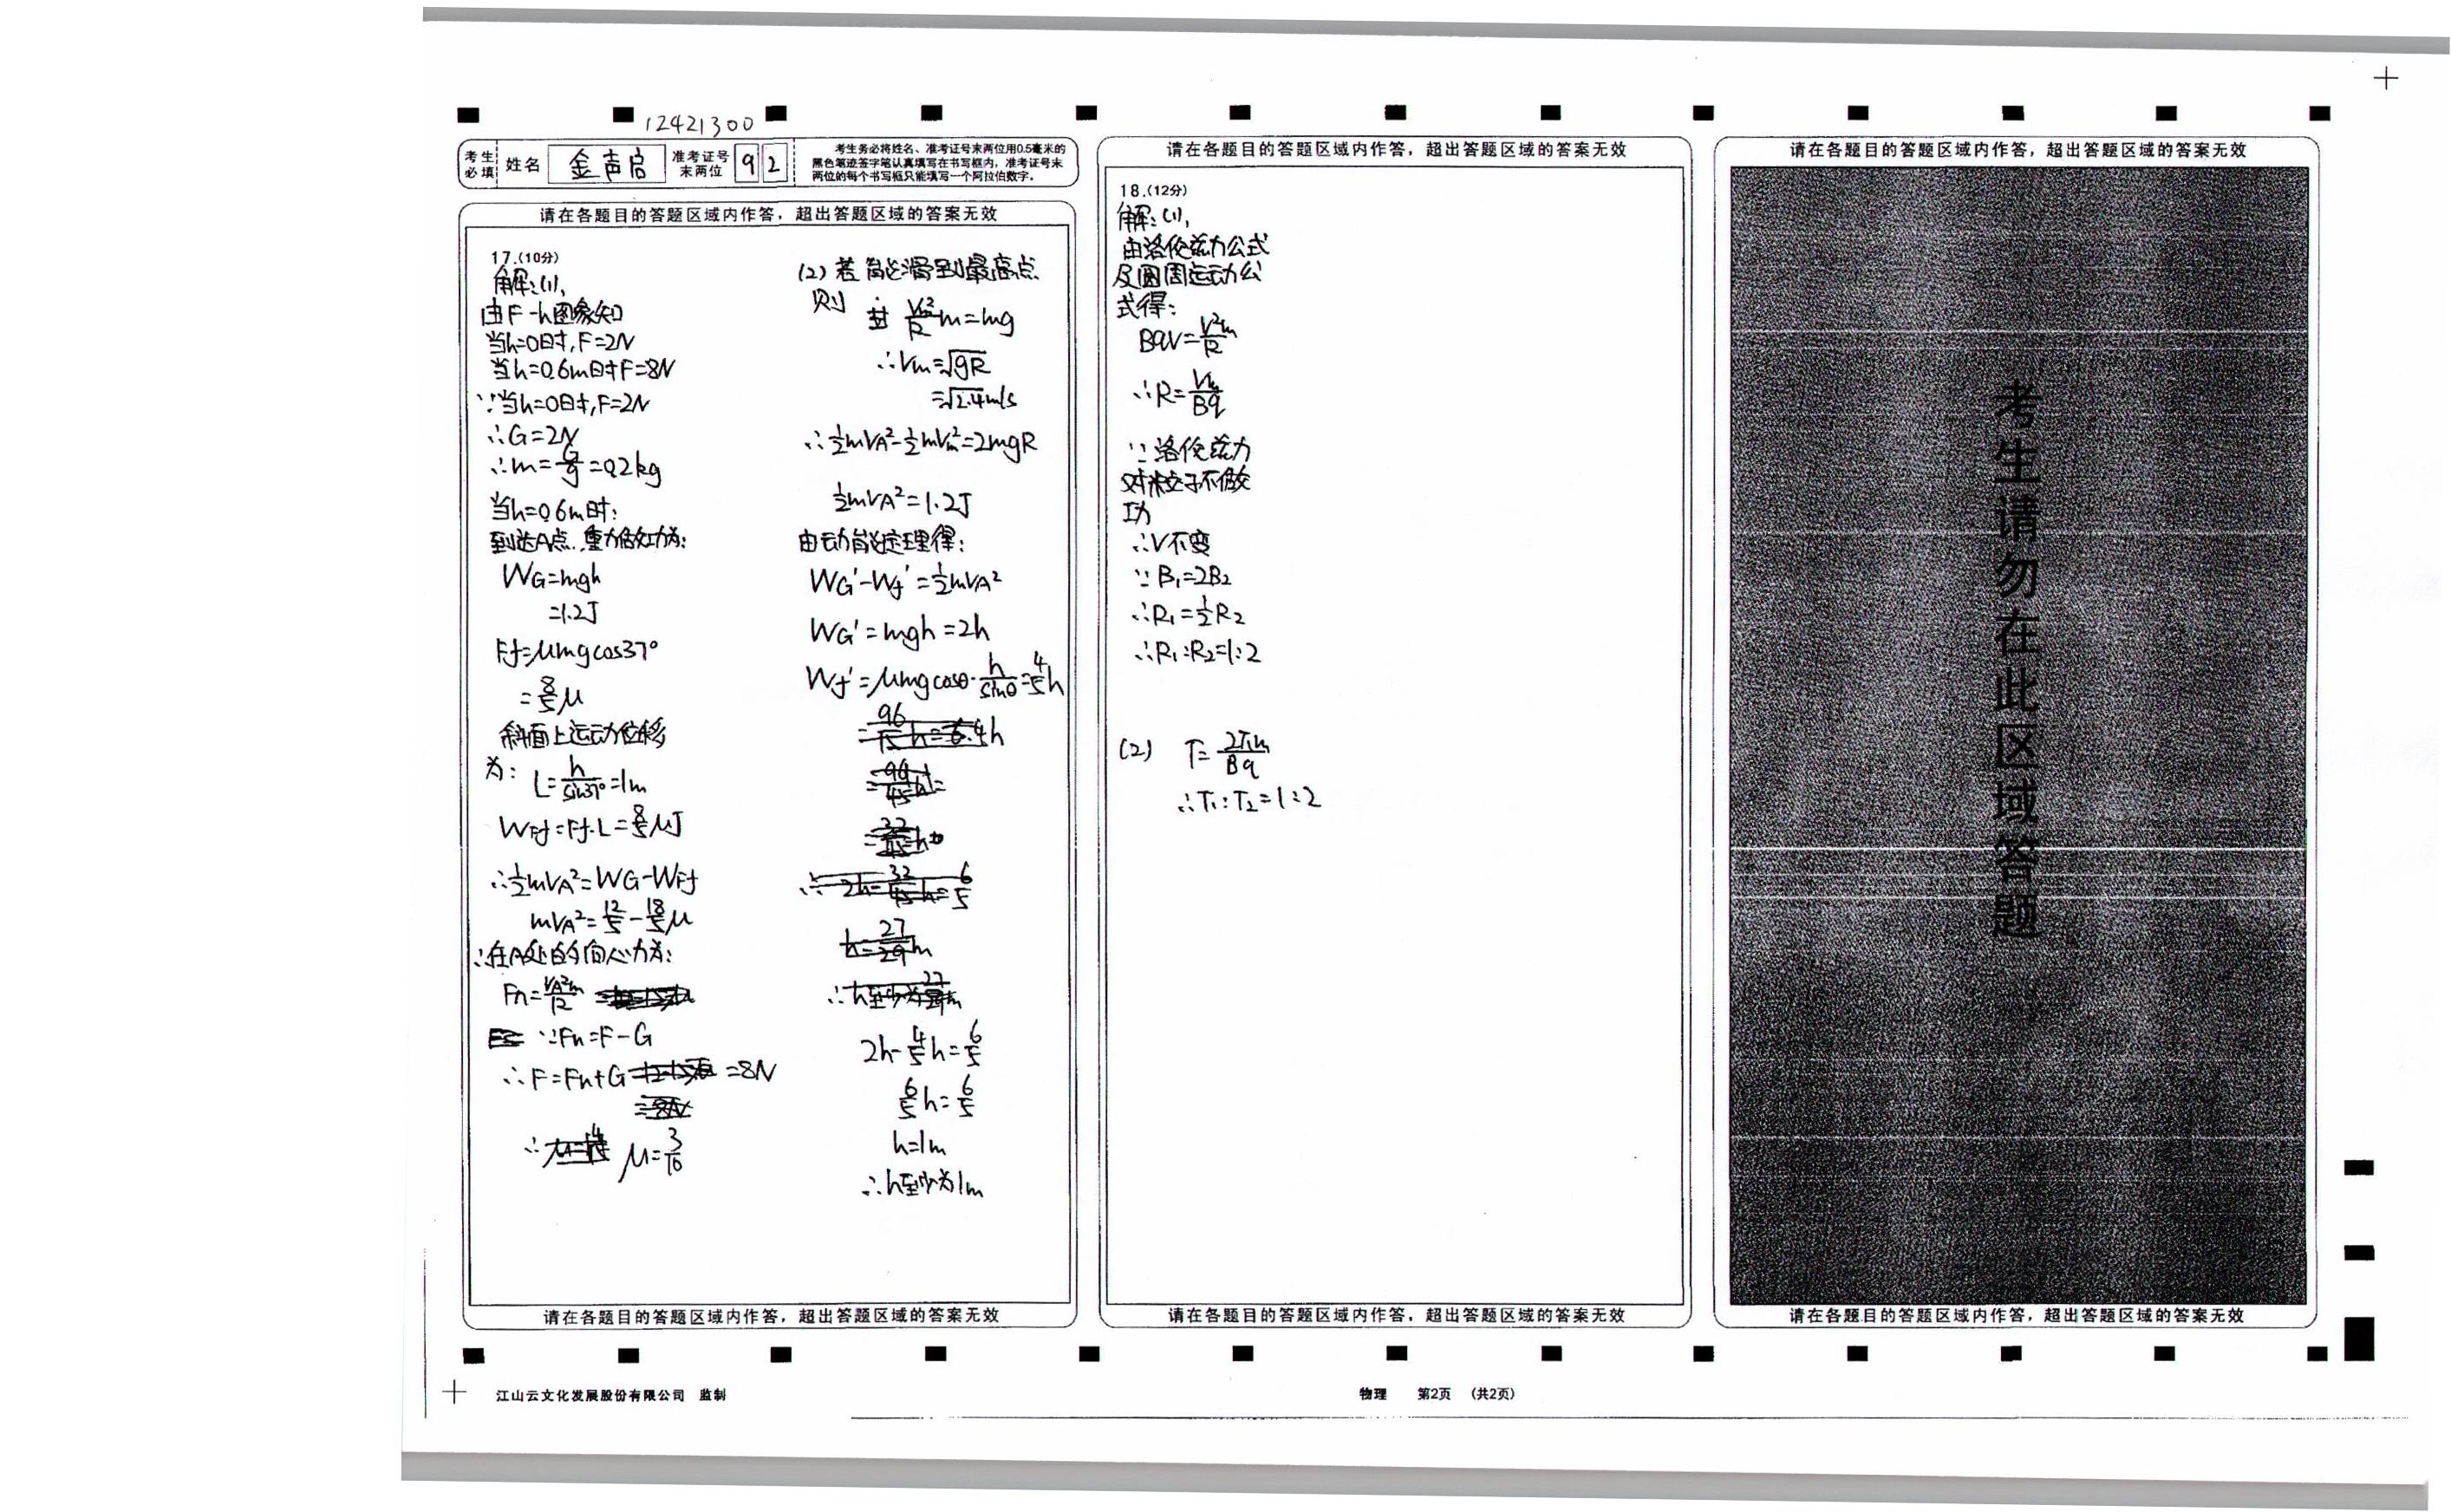 12421300
考生必填 姓名 金声启 准考证号末两位 9 2
考生务必将姓名、准考证号末两位用0.5毫米的
黑色笔迹签字笔认真填写在书写框内，准考证号末
两位的每个书写框只能填写一个阿拉伯数字。
请在各题目的答题区域内作答，超出答题区域的答案无效
17.(10分)
解:(1),
由F-h图象知
当h=0时,F=2N
当h=0.6m时F=8N
∵当h=0时,F=2N
∴G=2N
∴m=G/g=0.2kg
当h=0.6m时:
到达A点,重力做功为:
WG=mgh
=1.2J
Ff=μmgcos37°
=8/5μ
斜面上运动位移
为: L=h/sin37°=1m
WFf=Ff·L=8/5μJ
∴1/2mVA²=WG-WFf
mVA²=12/5-18/5μ
∴在A处的向心力为:
Fn=VA²m/R
∵Fn=F-G
∴F=Fn+G=8N
∴μ=3/10
(2)若能滑到最高点
则 Vm²/R m=mg
∴Vm=√gR
=√2.4m/s
∴1/2mVA²-1/2mVm²=2mgR
1/2mVA²=1.2J
由动能定理得:
WG'-Wf'=1/2mVA²
WG'=mgh=2h
Wf'=μmgcosθ·h/sinθ=4/5h
2h-4/5h=6/5
6/5h=6/5
h=1m
∴h至少为1m
请在各题目的答题区域内作答，超出答题区域的答案无效
请在各题目的答题区域内作答，超出答题区域的答案无效
18.(12分)
解:(1),
由洛伦兹力公式
及圆周运动公
式得:
BqV=V²m/R
∴R=Vm/Bq
∵洛伦兹力
对粒子不做
功
∴V不变
∵B₁=2B₂
∴R₁=1/2R₂
∴R₁:R₂=1:2
(2) T=2πm/Bq
∴T₁:T₂=1:2
请在各题目的答题区域内作答，超出答题区域的答案无效
请在各题目的答题区域内作答，超出答题区域的答案无效
考生请勿在此区域答题
请在各题目的答题区域内作答，超出答题区域的答案无效
江山云文化发展股份有限公司 监制
物理 第2页 (共2页)